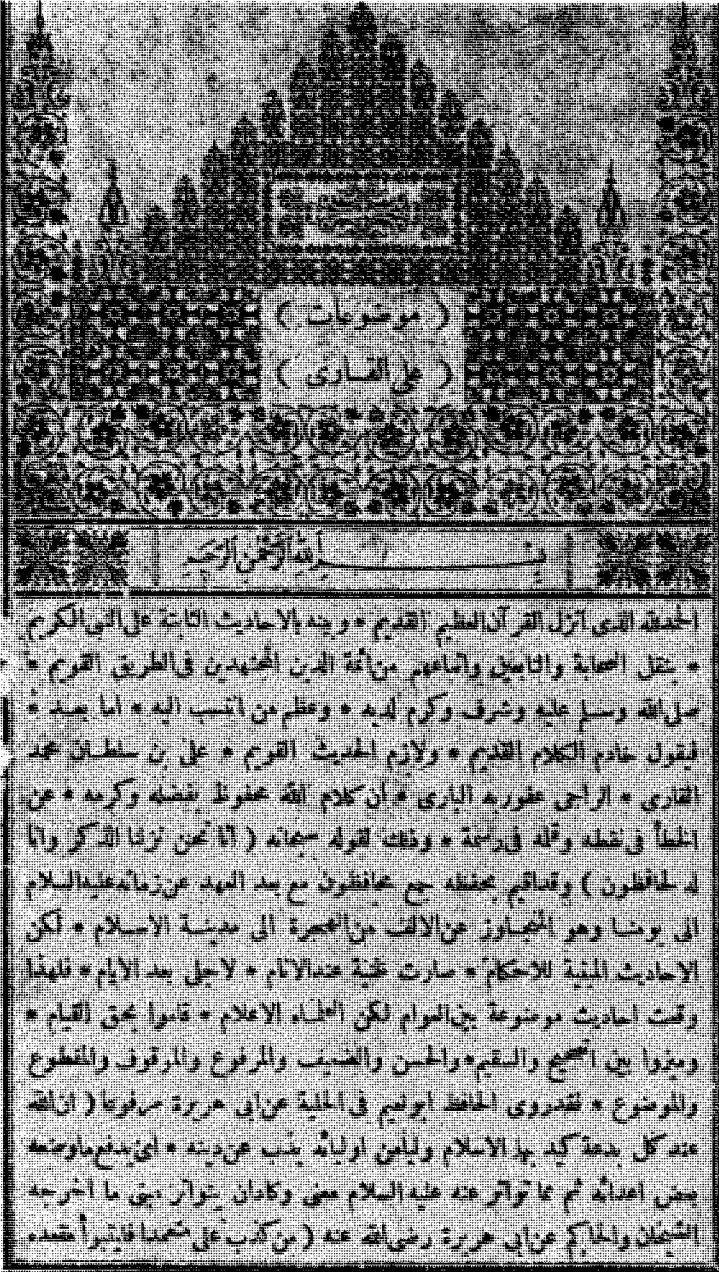 ( موضوعات )
( على القارى )
بسم الله الرحمن الرحيم
الحمدلله الذى انزل القرآن العظيم القديم * وبينه بالاحاديث الثابتة على النبى الكريم
* بنقل الصحابة والتابعين واتباعهم من أئمة الدين المجتهدين فى الطريق القويم *
صلى الله وسلم عليه وشرف وكرم لديه * وعظم من انتسب اليه * اما بعد *
فيقول خادم الكلام القديم * ولازم الحديث القويم * على بن سلطان محمد
القارى * الراجى عفو ربه البارى * ان كلام الله محفوظ بفضله وكرمه * عن
الخطأ فى نقطه وقلمه فى رسمه * وذلك لقوله سبحانه ( انا نحن نزلنا الذكر وانا
له لحافظون ) وقد اقيم بحفظه جمع محافظون مع بعد العهد عن زمانه عليه السلام
الى يومنا وهو المتجاوز عن الالف من الهجرة الى مدينة الاسلام * لكن
الاحاديث المبينة للاحكام * صارت ظنية عند الانام * لاجل بعد الايام * فلهذا
وقعت احاديث موضوعة بين العوام لكن العلماء الاعلام * قاموا بحق القيام *
وميزوا بين الصحيح والسقيم * والحسن والضعيف والمرفوع والموقوف والمقطوع
والموضوع * فقد روى الحافظ ابو نعيم فى الحلية عن ابى هريرة مرفوعا ( ان لله
عند كل بدعة كيد بها الاسلام وليا من اوليائه يذب عن دينه * اى يدفع ما وضعه
بعض اعدائه ثم مما تواتر عنه عليه السلام معنى وكاد ان يتواتر مبنى ما اخرجه
الشيخان والحاكم عن ابى هريرة رضى الله عنه ( من كذب على متعمدا فليتبوأ مقعده